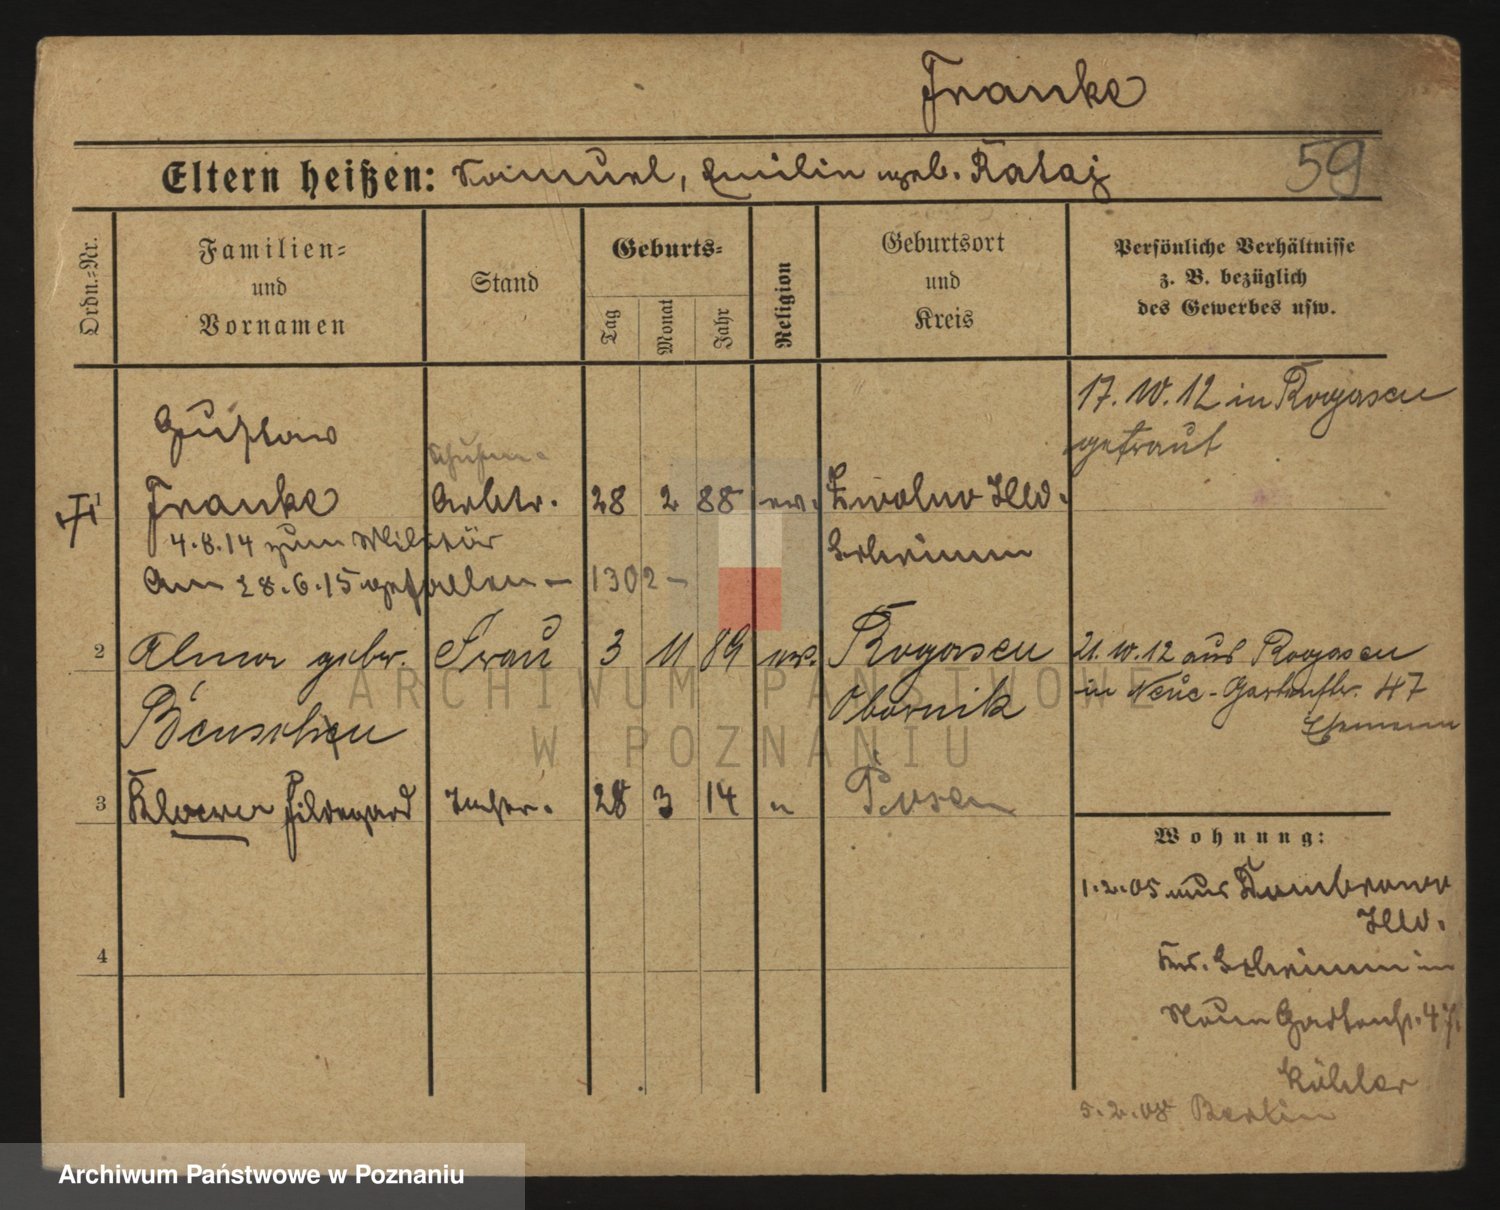 Franke
59
Eltern heißen: Samuel, Emilie geb. Rataj
Ordn.=Nr.
Familien=
und
Vornamen
Stand
Geburts=
Tag
Monat
Jahr
Religion
Geburtsort
und
Kreis
Persönliche Verhältnisse
z. B. bezüglich
des Gewerbes usw.
17. 10. 12 in Rogasen
getraut
Gustav
1 Franke Arbtr. 28 2 88 ev. Hld.
4.8.14 zum Militär Schrimm
Am 28.6.15 gefallen – 1302 –
2 Alma gebor. Frau 3 11 89 ev. Rogasen
Benschen Obornik
21. 10. 12 aus Rogasen
in Neue-Gartenstr. 47
Ehemann
3 Klara Hildegard Tochter. 28 3 14 " Posen
4
Wohnung:
1.2.05 aus Dombrowo
Hld.
Krs. Schrimm in
Neue Gartenstr. 47.
Köhler
5.2.08 Berlin
ARCHIWUM PAŃSTWOWE
W POZNANIU
Archiwum Państwowe w Poznaniu